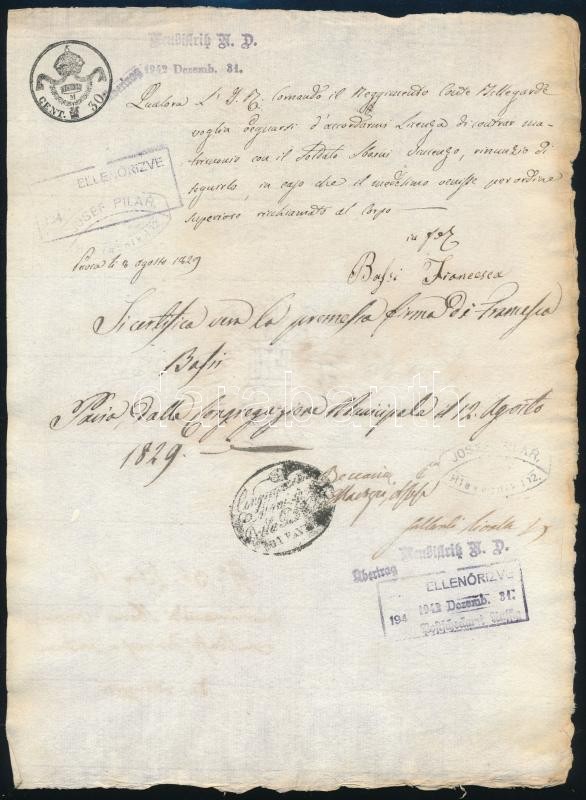 Neubistritz N. D.
Übertrag 1942 Dezemb. 31.
CENT. 30.
Qualora L' I. R. Comando il Reggimento Conte Bellegarde
voglia degnarsi d'accordarmi Licenza di contrar ma-
trimonio con il Soldato Vincenzo, rinunzio di
seguirlo, in caso che il medesimo venisse per ordine
superiore richiamato al Corpo
194 ELLENŐRIZVE
JOSEF PILAR,
in fede
Pavia li 8 agosto 1829
Bassi Francesca
Si certifica vera la premessa firma di Francesca
Bassi
Pavia, dalla Congregazione Municipale il 12. Agosto
1829.
JOSEF PILAR,
Beccaria
Congregazione
Municipale
Della Regia
DI PAVIA
Übertrag Neubistritz N. D.
ELLENŐRIZVE
194 1942 Dezemb. 31.
darabanth